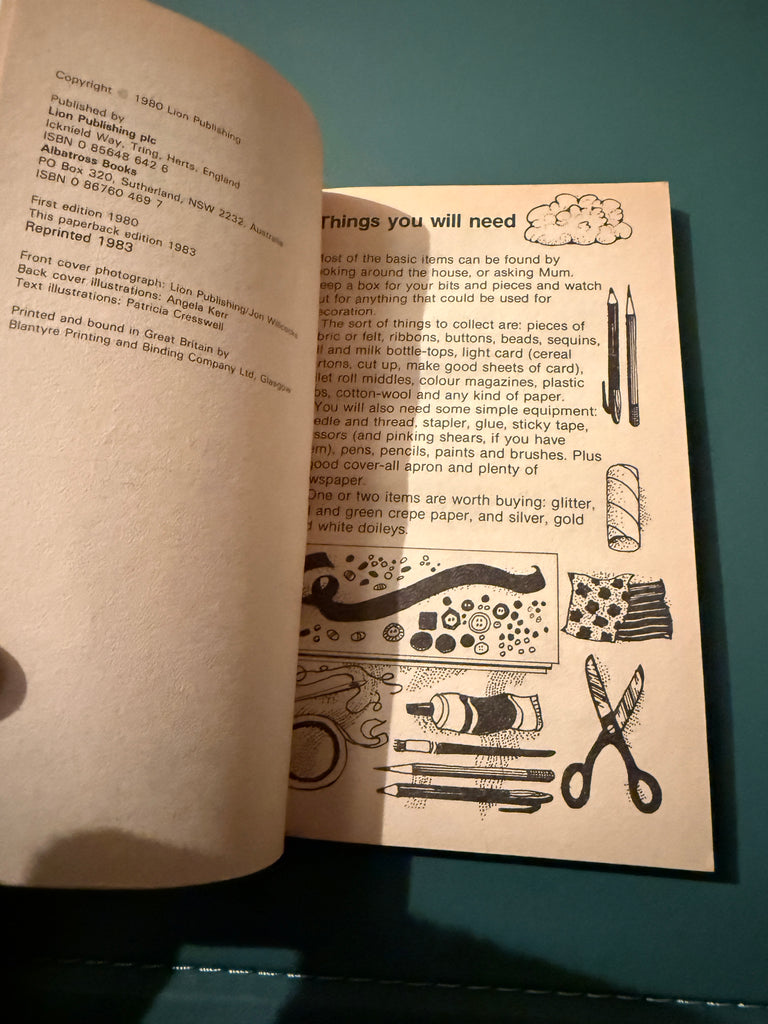 Copyright © 1980 Lion Publishing
Published by
Lion Publishing plc
Icknield Way, Tring, Herts, England
ISBN 0 85648 642 6
Albatross Books
PO Box 320, Sutherland, NSW 2232, Australia
ISBN 0 86760 469 7
First edition 1980
This paperback edition 1983
Reprinted 1983
Front cover photograph: Lion Publishing/Jon Willcocks
Back cover illustrations: Angela Kerr
Text illustrations: Patricia Cresswell
Printed and bound in Great Britain by
Blantyre Printing and Binding Company Ltd, Glasgow
Things you will need
ost of the basic items can be found by
oking around the house, or asking Mum.
eep a box for your bits and pieces and watch
ut for anything that could be used for
ecoration.
The sort of things to collect are: pieces of
bric or felt, ribbons, buttons, beads, sequins,
il and milk bottle-tops, light card (cereal
rtons, cut up, make good sheets of card),
ilet roll middles, colour magazines, plastic
os, cotton-wool and any kind of paper.
You will also need some simple equipment:
edle and thread, stapler, glue, sticky tape,
ssors (and pinking shears, if you have
em), pens, pencils, paints and brushes. Plus
ood cover-all apron and plenty of
wspaper.
One or two items are worth buying: glitter,
l and green crepe paper, and silver, gold
d white doileys.